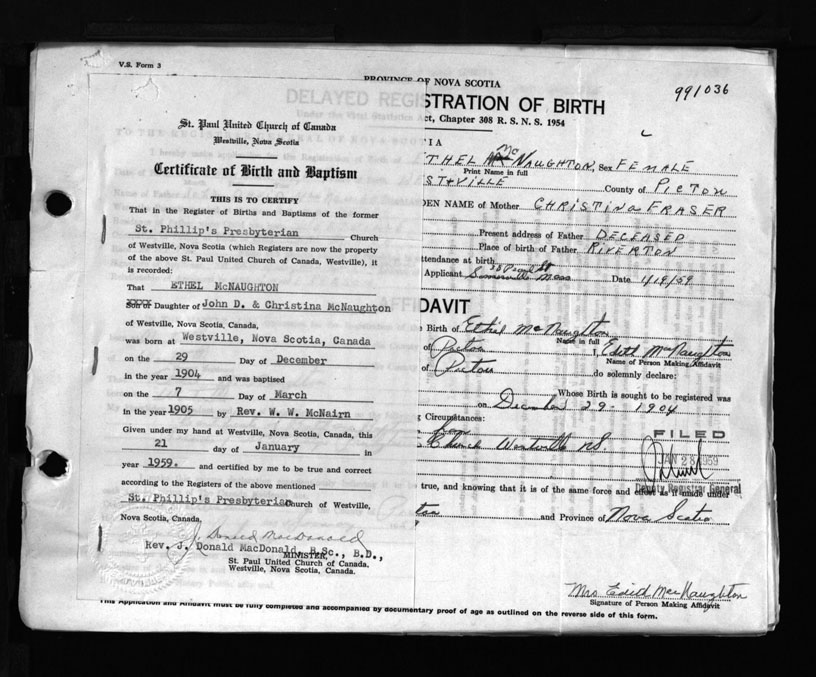 V.S. Form 3
St. Paul United Church of Canada
Westville, Nova Scotia
Certificate of Birth and Baptism
THIS IS TO CERTIFY
That in the Register of Births and Baptisms of the former
St. Phillip's Presbyterian Church
of Westville, Nova Scotia (which Registers are now the property
of the above St. Paul United Church of Canada, Westville), it
is recorded:
That ETHEL McNAUGHTON
Son or Daughter of John D. & Christina McNaughton
of Westville, Nova Scotia, Canada,
was born at Westville, Nova Scotia, Canada
on the 29 Day of December
in the year 1904 and was baptised
on the 7 Day of March
in the year 1905 by Rev. W. W. McNairn
Given under my hand at Westville, Nova Scotia, this
21 day of January in
year 1959. and certified by me to be true and correct
according to the Registers of the above mentioned
St. Phillip's Presbyterian Church of Westville,
Nova Scotia, Canada.
J. Donald MacDonald
Rev. J. Donald MacDonald, B.Sc., B.D.,
MINISTER,
St. Paul United Church of Canada,
Westville, Nova Scotia, Canada.
PROVINCE OF NOVA SCOTIA
991036
DELAYED REGISTRATION OF BIRTH
ct, Chapter 308 R. S. N. S. 1954
THEL McNAUGHTON, Sex FEMALE
Print Name in full
STVILLE County of PICTOU
DEN NAME of Mother CHRISTINA FRASER
Present address of Father DECEASED
Place of birth of Father RIVERTON
ttendance at birth
Applicant 38 Pearl St Somerville Mass Date 1/19/59
DAVIT
Birth of Ethel McNaughton
Name in full
of Pictou I, Edith MacNaughton
Name of Person Making Affidavit
of Pictou do solemnly declare:
Whose Birth is sought to be registered was
on December 29 - 1904
g Circumstances:
from
Church Westville N.S.
FILED
JAN 28 1959
Deputy Registrar General
true, and knowing that it is of the same force and effect as if made under
and Province of Nova Scotia
Mrs Edith MacNaughton
Signature of Person Making Affidavit
This Application and Affidavit must be fully completed and accompanied by documentary proof of age as outlined on the reverse side of this form.